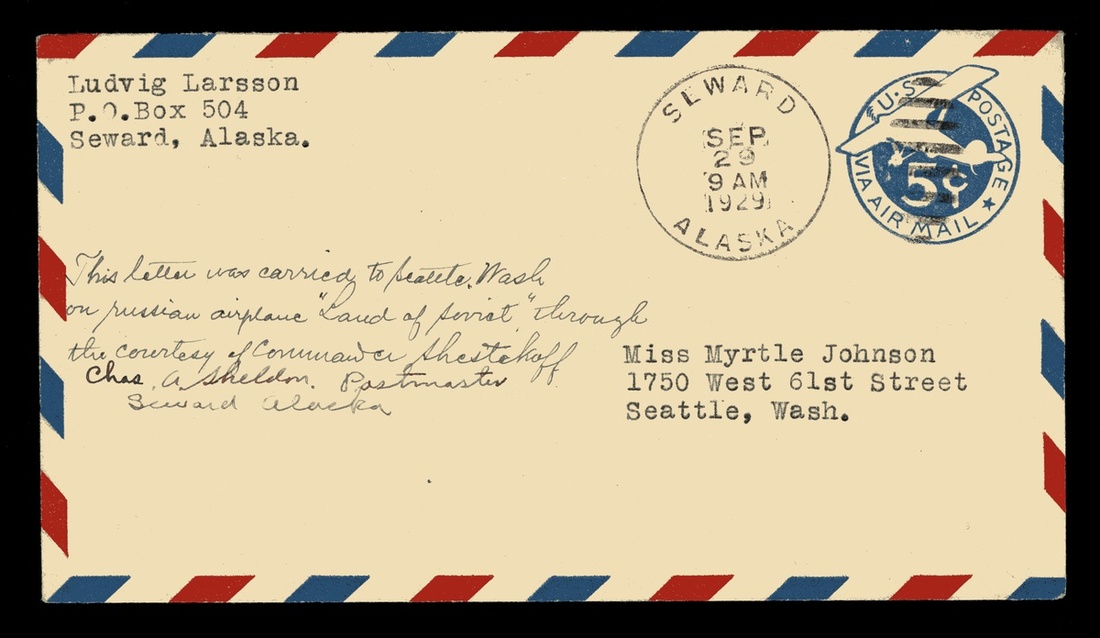 Ludvig Larsson
P.O.Box 504
Seward, Alaska.
SEWARD
SEP
29
9 AM
1929
ALASKA
U.S POSTAGE
5¢
VIA AIR MAIL
This letter was carried to Seattle, Wash
on russian airplane "Land of Soviet," through
the courtesy of Commander Shestakoff
Chas. A. Sheldon. Postmaster
Seward Alaska
Miss Myrtle Johnson
1750 West 61st Street
Seattle, Wash.